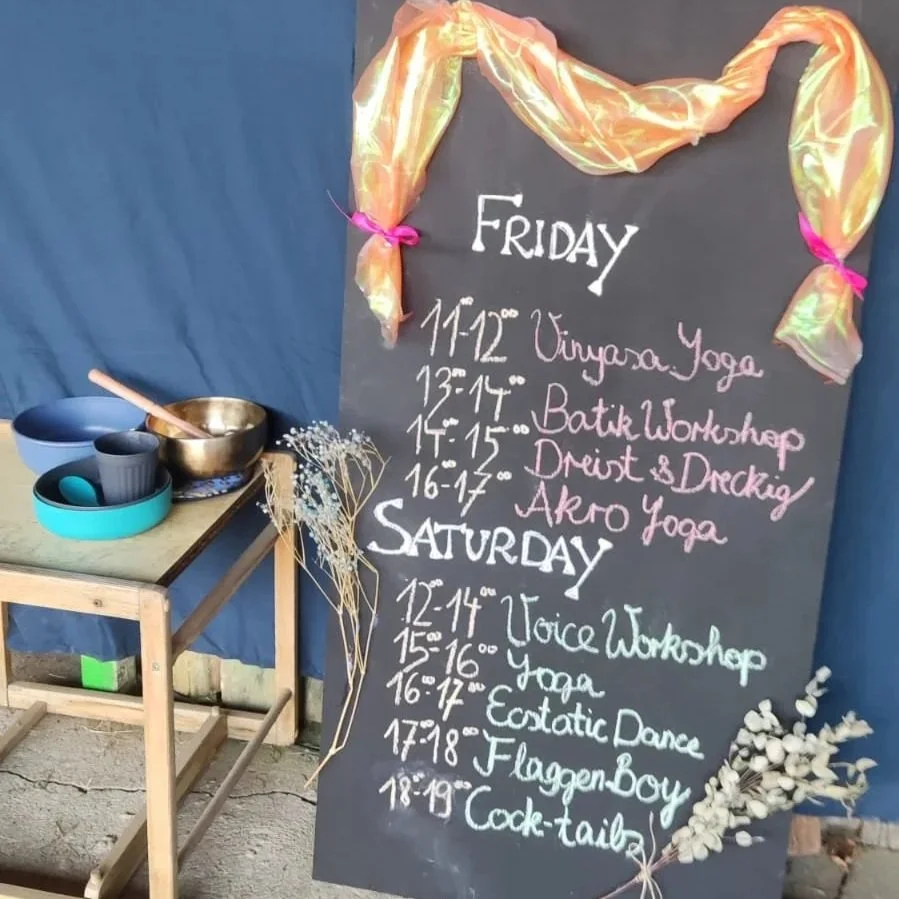 FRIDAY
11-12⁰⁰ Vinyasa Yoga
13⁰⁰-14⁰⁰ Batik Workshop
14⁰⁰-15⁰⁰ Dreist & Dreckig
16⁰⁰-17⁰⁰ Akro Yoga
SATURDAY
12⁰⁰-14⁰⁰ Voice Workshop
15⁰⁰-16⁰⁰ Yoga
16⁰⁰-17⁰⁰ Ecstatic Dance
17⁰⁰-18⁰⁰ FlaggenBoy
18⁰⁰-19⁰⁰ Cock-tails